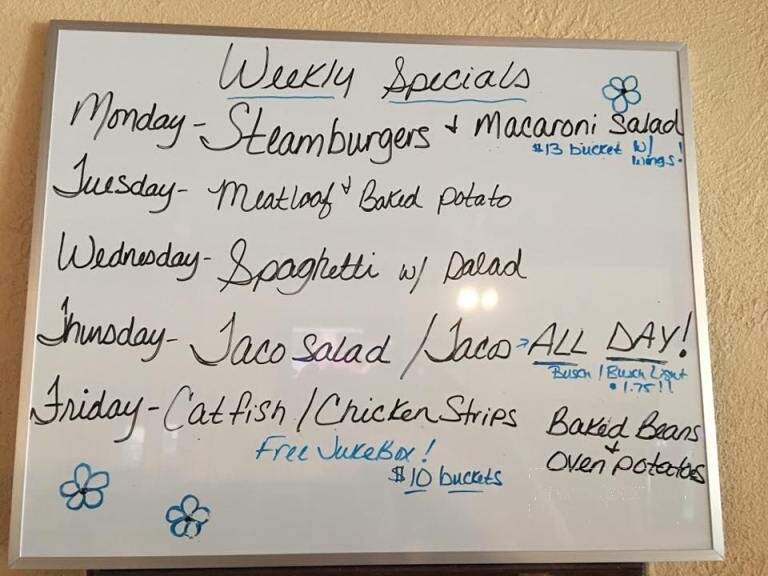 Weekly Specials
Monday - Steamburgers & Macaroni Salad
$13 bucket w/
wings!
Tuesday - Meatloaf & Baked Potato
Wednesday - Spaghetti w/ Salad
Thursday - Taco Salad / Tacos → ALL DAY!
Busch / Busch Light
• 1.75!!
Friday - Catfish / Chicken Strips
Baked Beans
&
Oven potatoes
Free JukeBox!
$10 buckets